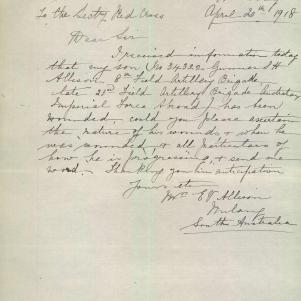 April 20th / 1918
To the Secty Red Cross
Dear Sir
I received information today
that my son (No 24322 Gunner H
Allison 8th Field Artillery Brigade
late 23rd Field Artillery Brigade Australian
Imperial Force Abroad) has been
wounded, could you please ascertain
the nature of his wounds & when he
was wounded & all particulars of
how he is progressing & send me
word. Thanking you in anticipation
Yours etc
Mrs E Allison
South Australia